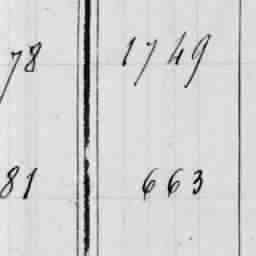 78 1749
81 663